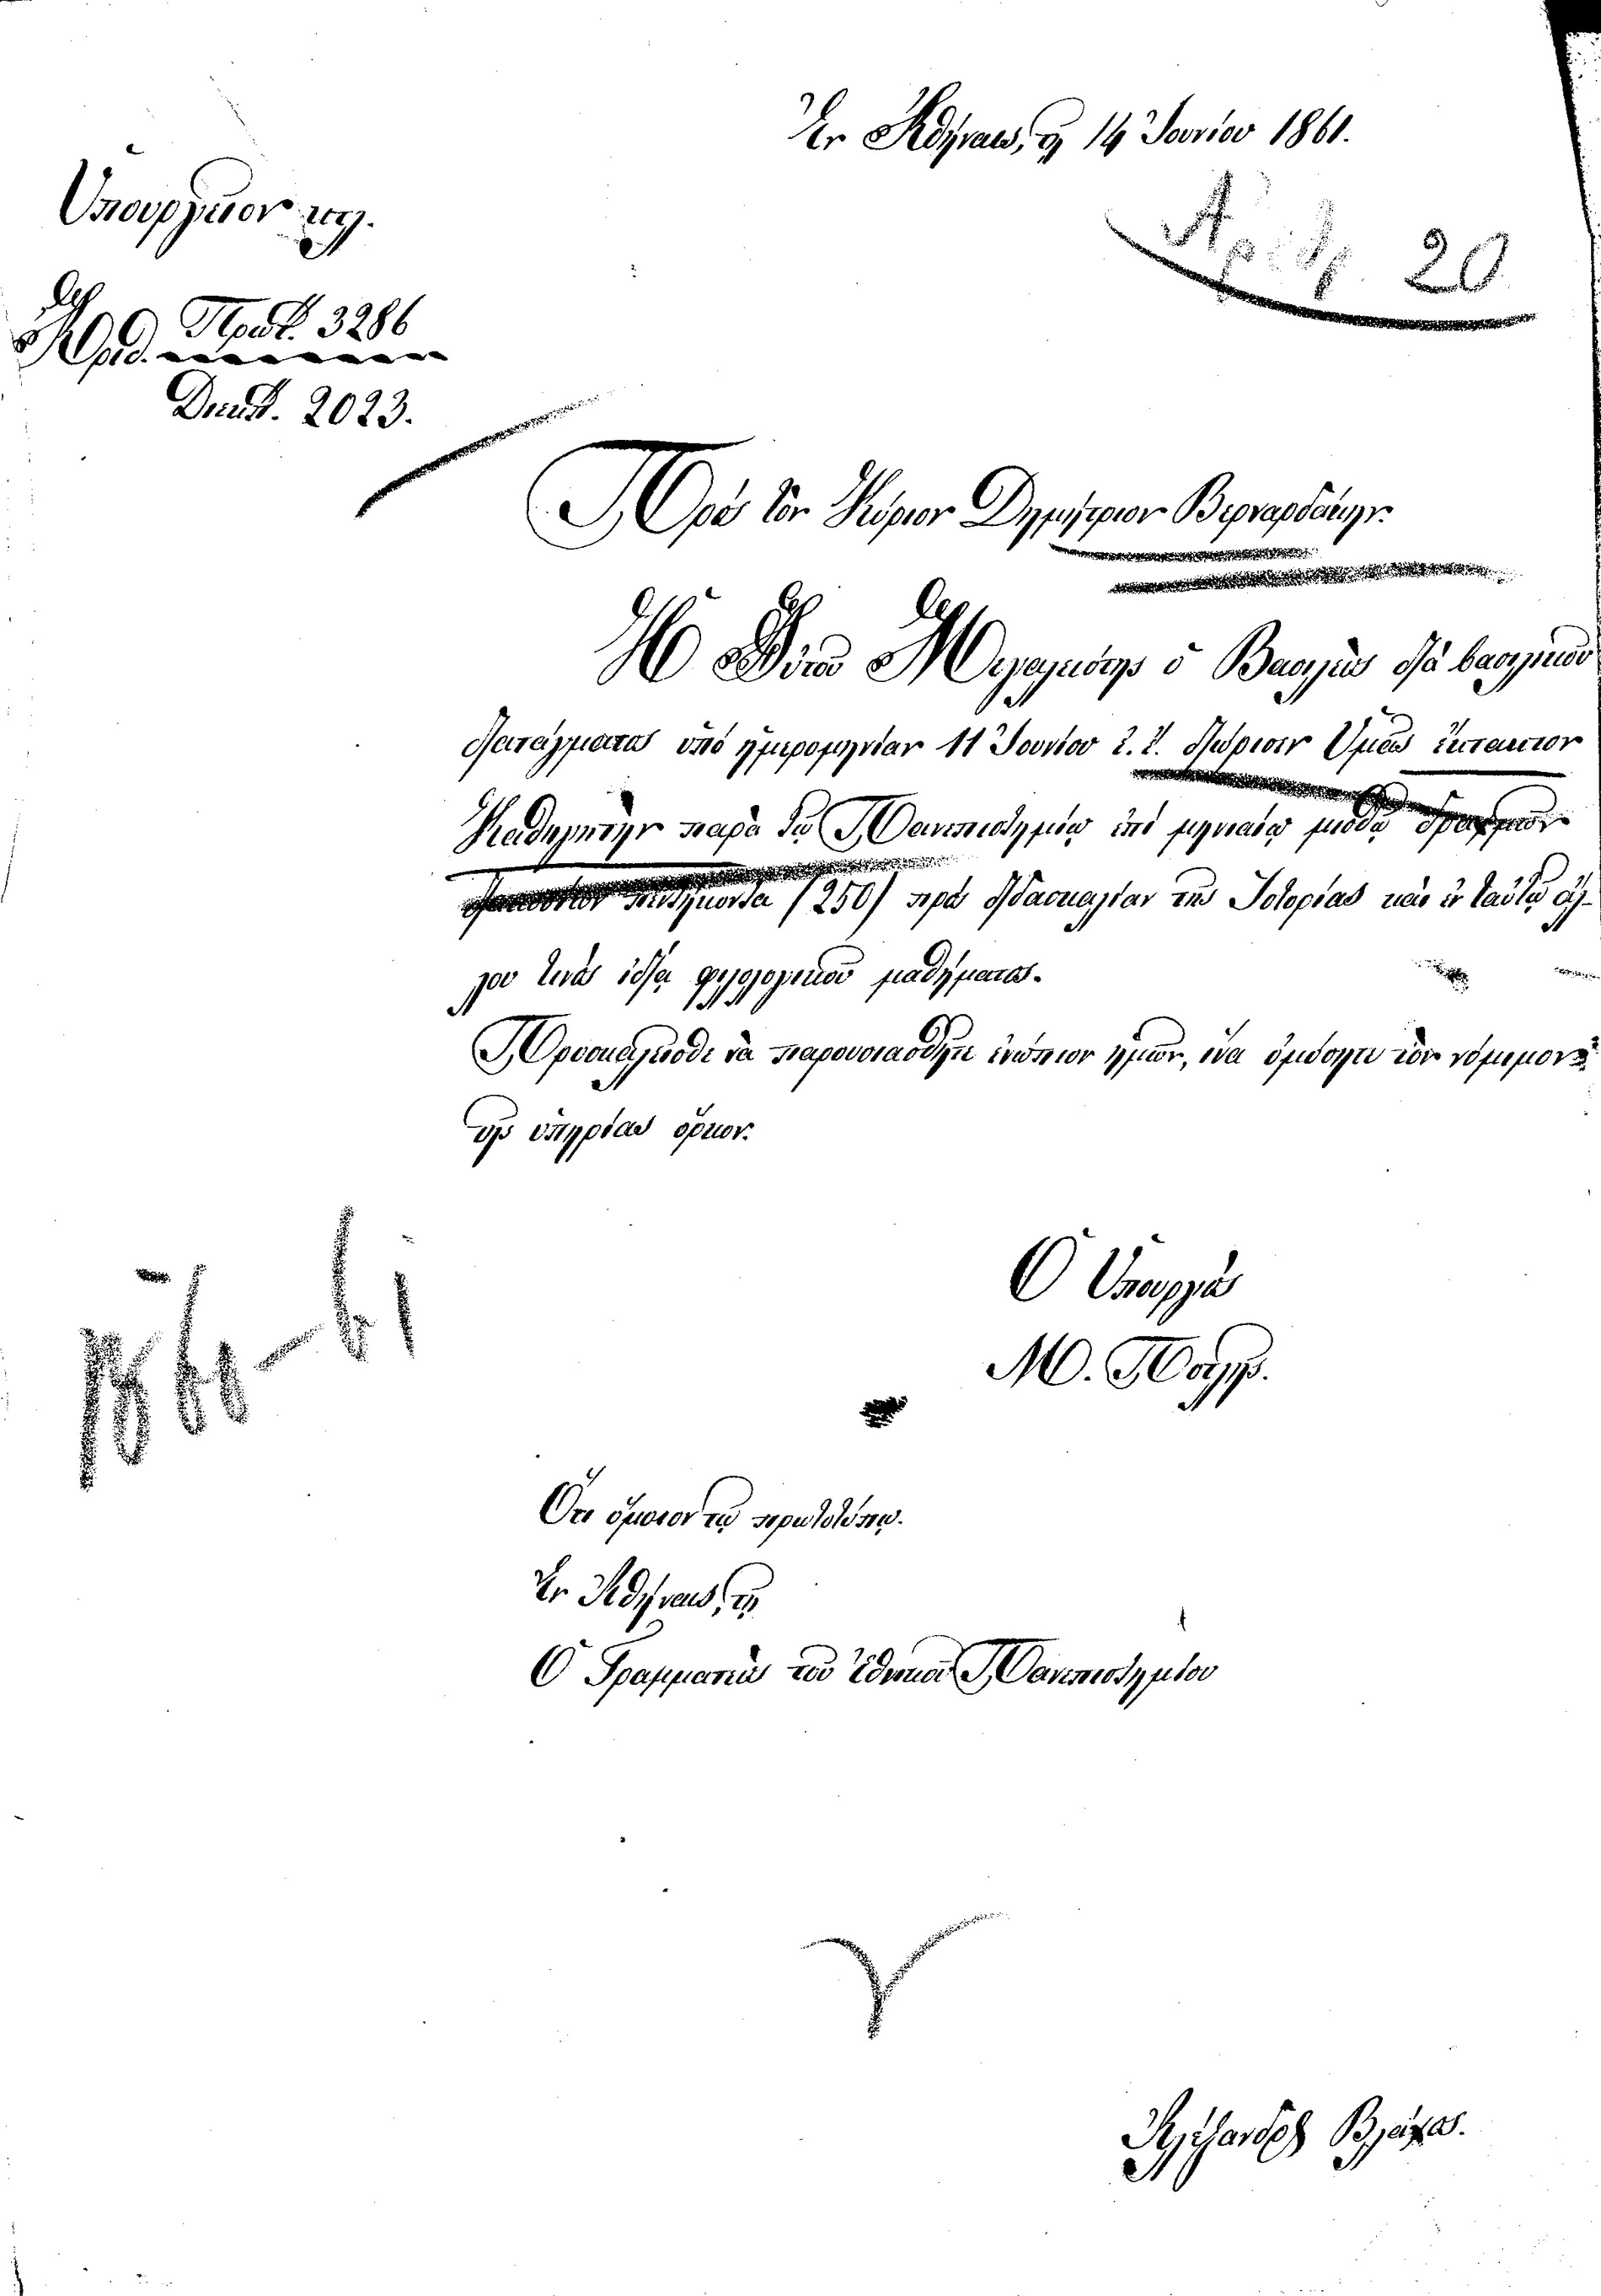 Ἐν Ἀθήναις, τῇ 14 Ἰουνίου 1861.
Ἀριθ. 20
Ὑπουργεῖον κτλ.
Πρωτ. 3286
Ἀριθ.
Διεκπ. 2023.
Πρὸς τὸν Κύριον Δημήτριον Βερναρδάκην.
Ἡ Αὐτοῦ Μεγαλειότης ὁ Βασιλεὺς διὰ βασιλικοῦ
διατάγματος ὑπὸ ἡμερομηνίαν 11 Ἰουνίου ἔ. ἔ. διώρισεν Ὑμᾶς ἔκτακτον
Καθηγητὴν παρὰ τῷ Πανεπιστημίῳ ἐπὶ μηνιαίῳ μισθῷ δραχμῶν
διακοσίων πεντήκοντα (250) πρὸς διδασκαλίαν τῆς Ἱστορίας καὶ ἐν ταύτῳ ἄλ-
λου τινὸς ἰδίᾳ φιλολογικοῦ μαθήματος.
Προσκαλεῖσθε νὰ παρουσιασθῆτε ἐνώπιον ἡμῶν, ἵνα ὀμόσητε τὸν νόμιμον
τῆς ὑπηρεσίας ὅρκον.
Ὁ Ὑπουργὸς
Μ. Ποτλῆς.
1860-61
Ὅτι ὅμοιον τῷ πρωτοτύπῳ.
Ἐν Ἀθήναις, τῇ
Ὁ Γραμματεὺς τοῦ Ἐθνικοῦ Πανεπιστημίου
Ἀλέξανδρος Βλάχος.